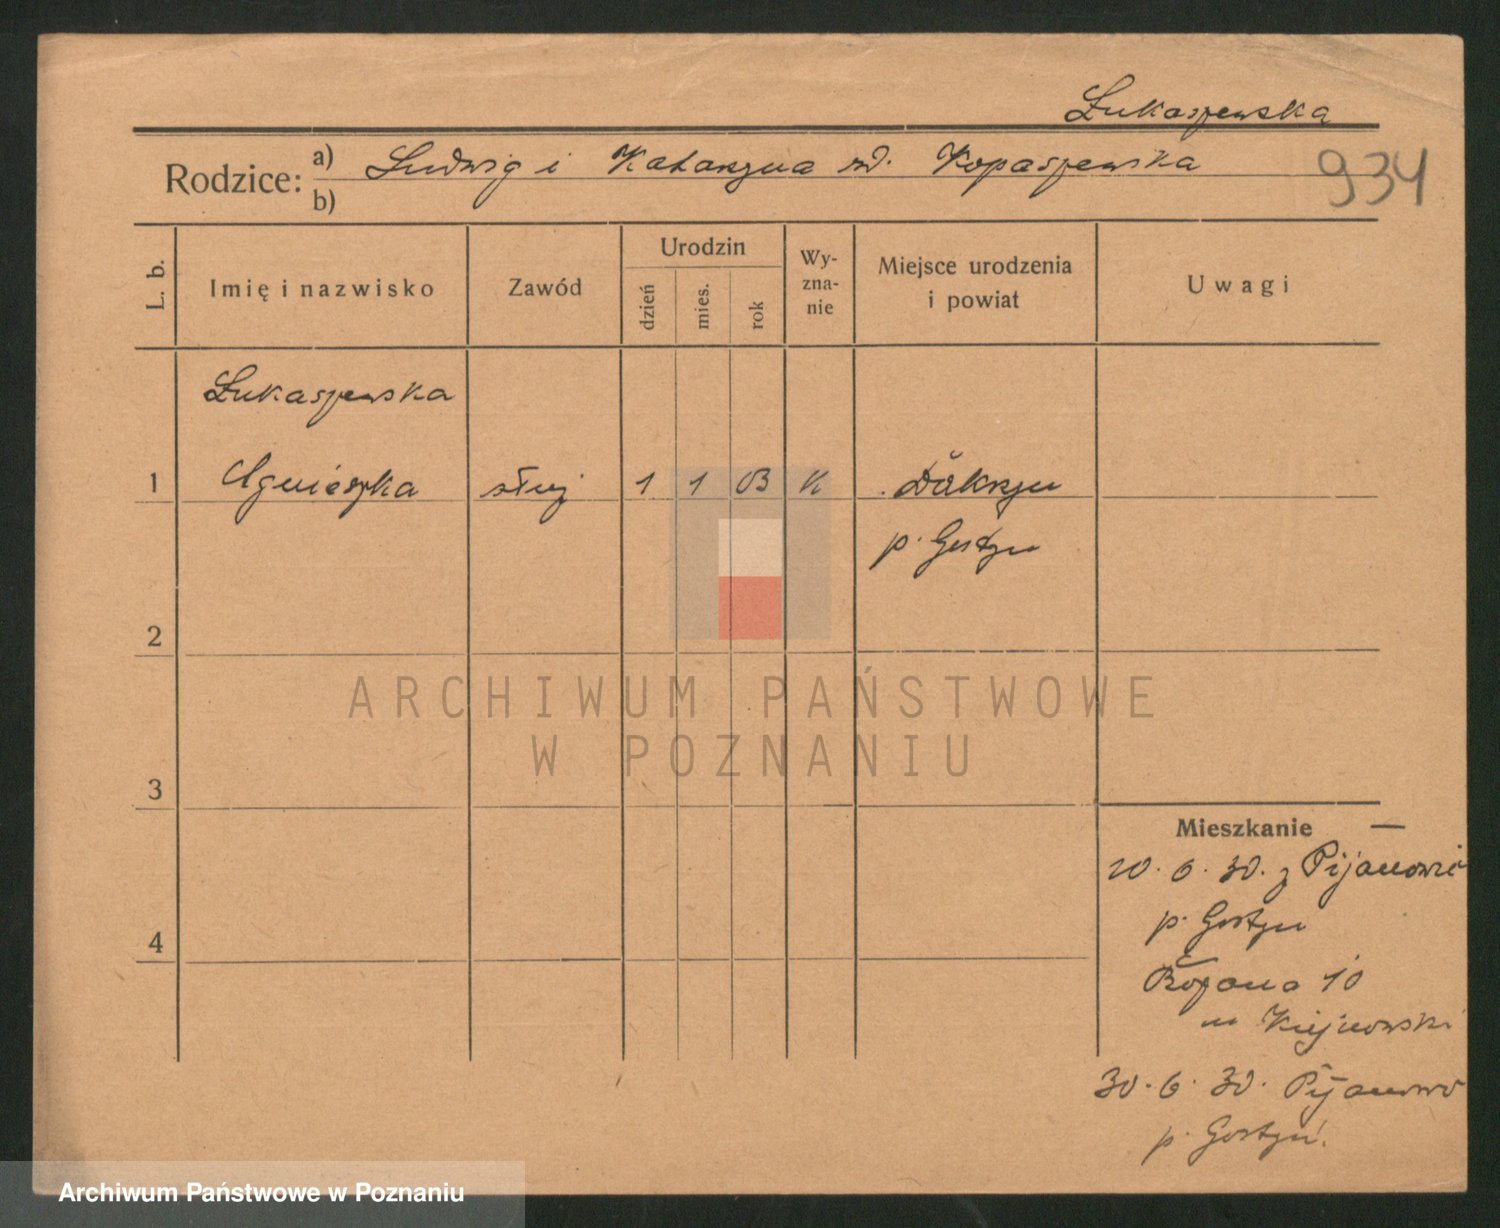 Łukaszewska
Rodzice: a) Ludwig i Katarzyna zd. Kopaszewska
b)
934
L. b.
Imię i nazwisko
Zawód
Urodzin
dzień
mies.
rok
Wy-
zna-
nie
Miejsce urodzenia
i powiat
Uwagi
Łukaszewska
1 Agnieszka służ 1 1 13 K
p. Gostyn
2
3
4
ARCHIWUM PAŃSTWOWE
W POZNANIU
Mieszkanie —
20.6.30. z Pijanowic
p. Gostyn
10
30.6.30. Pijanowo
p. Gostyń.
Archiwum Państwowe w Poznaniu